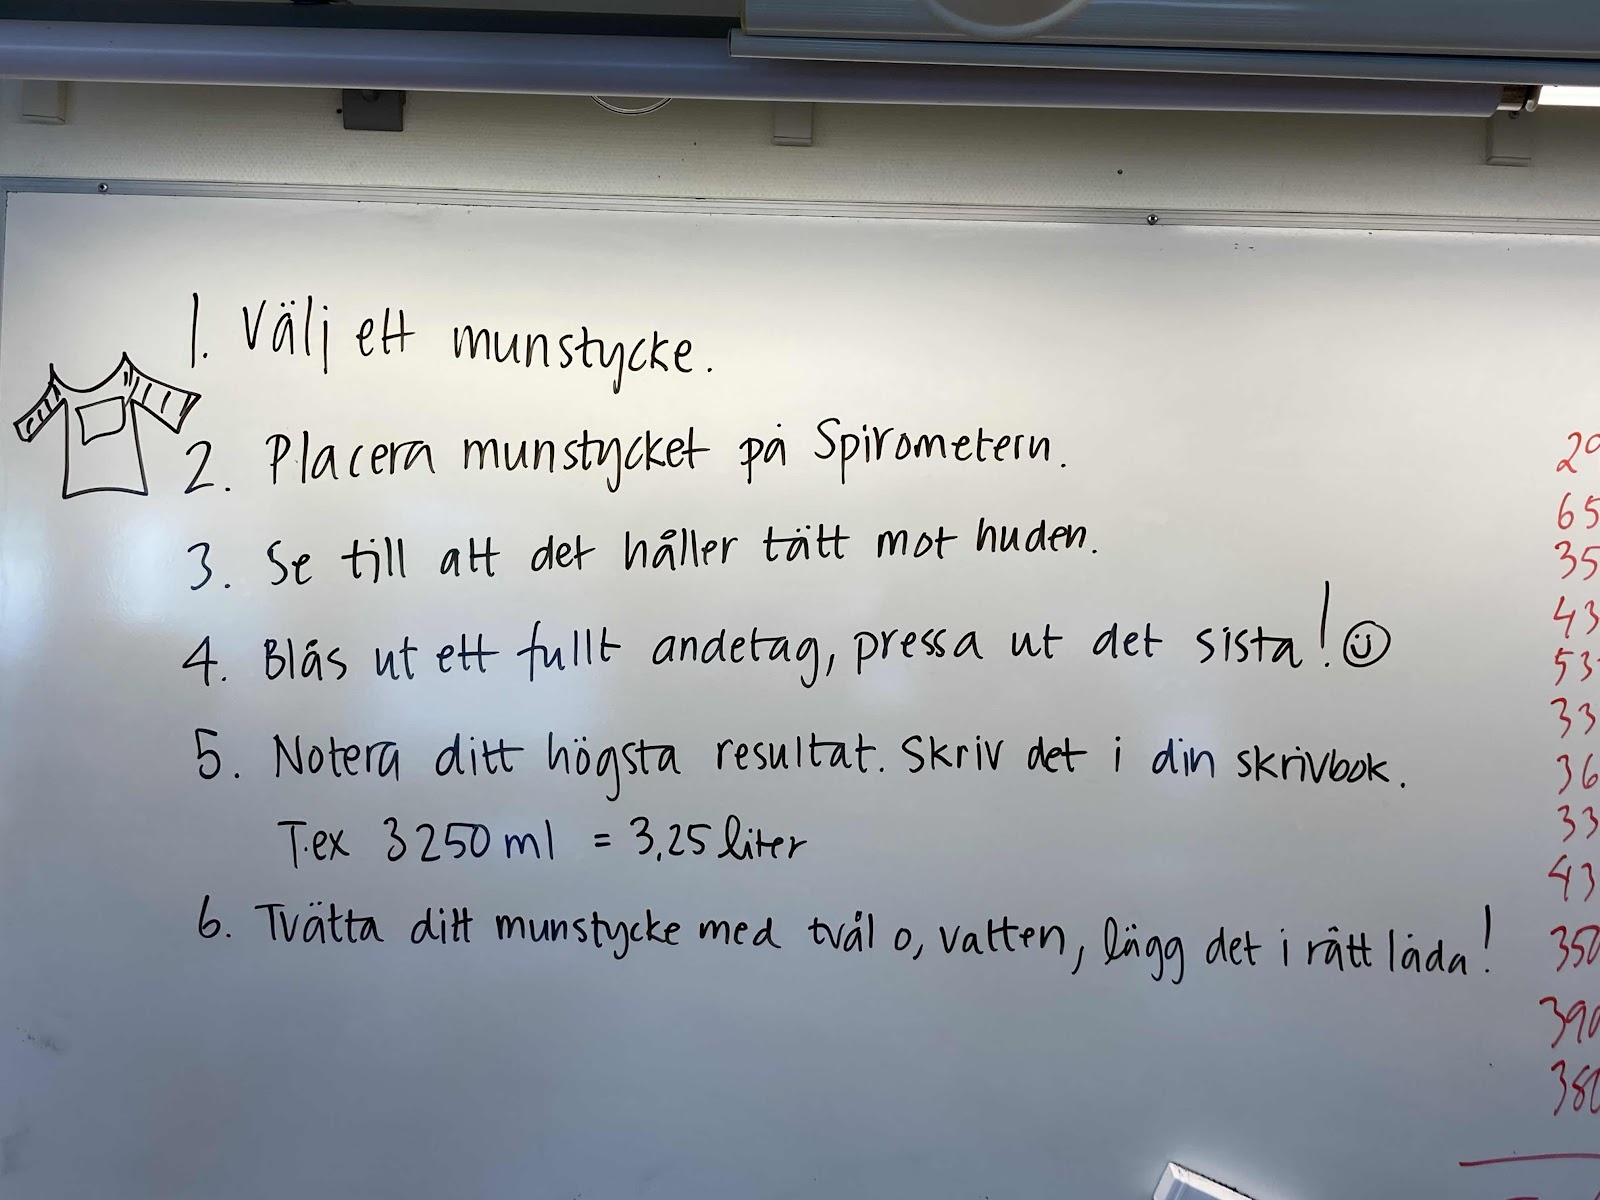 1. Välj ett munstycke.
2. Placera munstycket på Spirometern.
3. Se till att det håller tätt mot huden.
4. Blås ut ett fullt andetag, pressa ut det sista! ☺
5. Notera ditt högsta resultat. Skriv det i din skrivbok.
T.ex 3250 ml = 3,25 liter
6. Tvätta ditt munstycke med tvål o, vatten, lägg det i rätt låda!
65
35
43
53
33
36
33
43
350
390
380